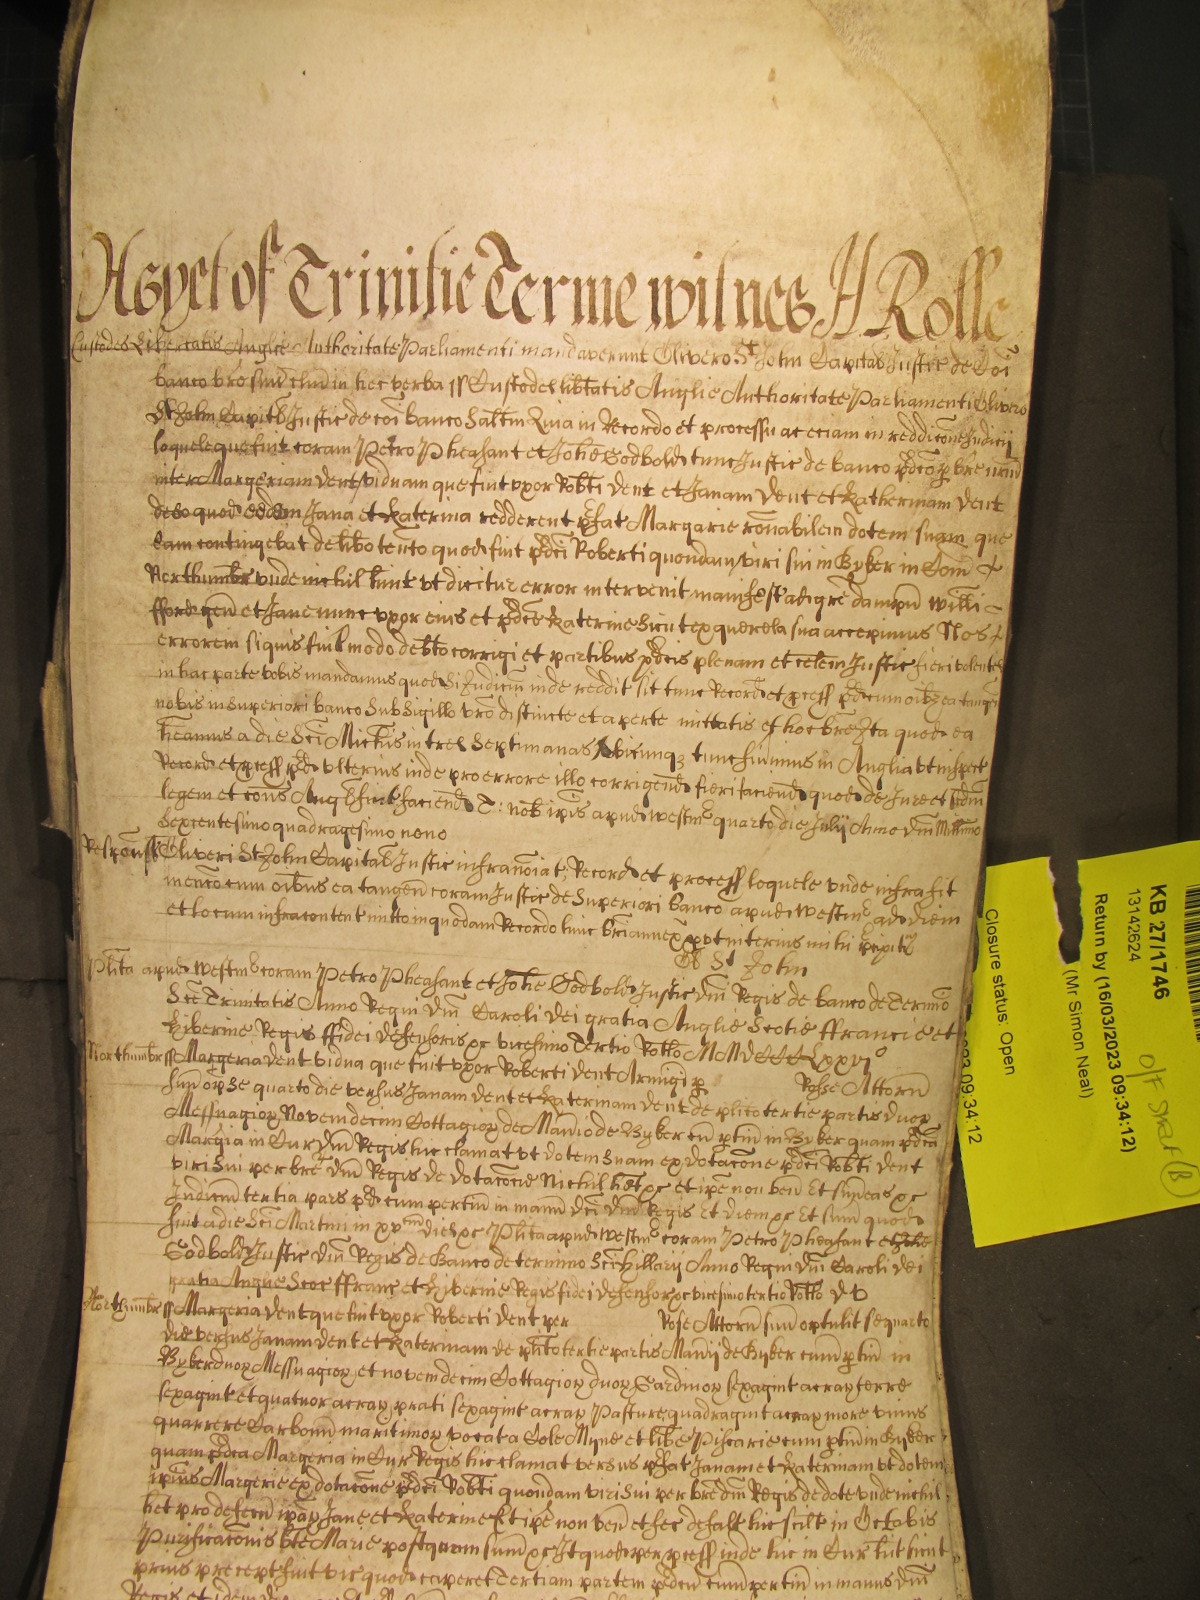 As yet of Trinitie Terme witnes H Rolle
Custodes Libertatis Anglie Authoritate Parliamenti mandaverunt Olivero St John Capitali Justic de Coi
banco bro suu claus in hec verba ss Custodes libtatis Anglie Authoritate Parliamenti Olivero
St John Capitli Justic de coi banco saltm Quia in Recordo et processu ac eciam in reddicone Judicij
loquele que fuit coram Petro Pheasant et Johe Godbold tunc Justic de banco pdco p bre
inter Margeriam dent viduam que fuit vxor Robti dent et Janam dent et Katherinam dent
deeo quod eedem Jana et Katerina redderent pfat Margarie ronabilem dotem suam que
eam contingebat de libo tento quod fuit pdci Roberti quondam viri sui in Byker in Com
Northumbr vnde nichil hint vt dicitur error intervenit manifestus ad gre dampnu Willi
fford gen et Jane nunc vxor eius et pdce Katerine sicut ex querela sua accepimus Nos
errorem siquis fuit modo debto corrigi et partibus pdcis plenam et celem Justic fieri volentes
in hac parte vobis mandamus quod si Judiciu inde reddit sit tunc Record et pcess pd cum oibz ea tangen
nobis in superiori banco sub sigillo vro distincte et aperte mittatis et hoc bre Ita quod ea
heamus a die Sci Michis in tres Septimanas vbicunqz tunc fuimus in Anglia vt inspect
Record et pcess pd vlterius inde pro errore illo corrigend fieri faciend quod de Jure et scdm
legem et cons Angl fuit faciend T: nob ipis apud Westm quarto die Julij Anno Dni Millimo
Sexcentesimo quadragesimo nono
Respons Oliveri St John Capital Justic infranoiat; Record et process loquele vnde infra fit
mencio cum oibus ea tangen coram Justic de Superiori banco apud Westm ad diem
et locum infracontent mitto in quodam Recordo huic bri annex put interius mihi pcipit
Ol St John
Plita apud Westm coram Petro Pheasant et Johe Godbold Justic dni Regis de banco de Termio
Sce Trinitatis Anno Regni dni Caroli dei gratia Anglie Scotie ffrancie et
Hibernie Regis ffidei defensoris &c vicesimo Tertio Rotlo MMDCCCLxxvjo
Northumbr ss Margeria dent vidua que fuit vxor Roberti dent Armigi p Rosse Attorn
suu op se quarto die versus Janam dent et Katerinam dent de plito tertie partis duor
Messuagior Novemdecim Cottagior de Manio de Byker cu ptin in Byker quam pdca
Margia in Cur dni Regis hic clamat vt dotem suam ex dotacone pdci Robti dent
viri sui per bre dni Regis de dotacone Nichil het &c et ipe non ven Et sum eas &c
Judicium tertia pars pd cum pertin in manu dci dni Regis Et diem &c Et sum quod
sint a die Sci Martini in xv dies &c Plita apud Westm coram Petro Pheasant et Johe
Godbold Justic dni Regis de Banco de termino Sci Hillarij Anno Regni dni Caroli dei
gratia Anglie Scoc ffranc et Hibernie Regis fidei defensor &c vicesimo tertio Rotlo DV
Northumbr ss Margeria dent que fuit vxor Roberti dent per Rose Attorn suu optulit se quarto
die versus Janam dent et Katerinam de plito tertie partis Manij de Byker cum ptin in
Byker duor Messuagior et novemdecim Cottagior duor Gardinor sexagint acrar terre
sexagint et quatuor acrar prati sexagint acrar Pasture quadragint acrar more vnius
quarrere Carbonu maritimor vocat a Cole Myne et libe Piscarie cum ptin in Byker
quam pdca Margeria in Cur Regis hic clamat versus pfat Janam et Katerinam vt dotem
ipius Margerie ex dotacone pdci Robti quondam viri sui per bre dni Regis de dote vnde nichil
het pro defcu ipar Jane et Katerine Et ipe non ven et fec defalt hic scilt in Octabis
Purificaconis bte Marie postquam sum &c Ita quod per pcess inde hic in Cur hit sicut
prius precept fuit vic quod caperet Tertiam partem pdcu cum pertin in manus dni
KB 27/1746
13142624
Return by (16/03/2023 09:34:12)
(Mr Simon Neal)
Closure status: Open
2023 09:34:12